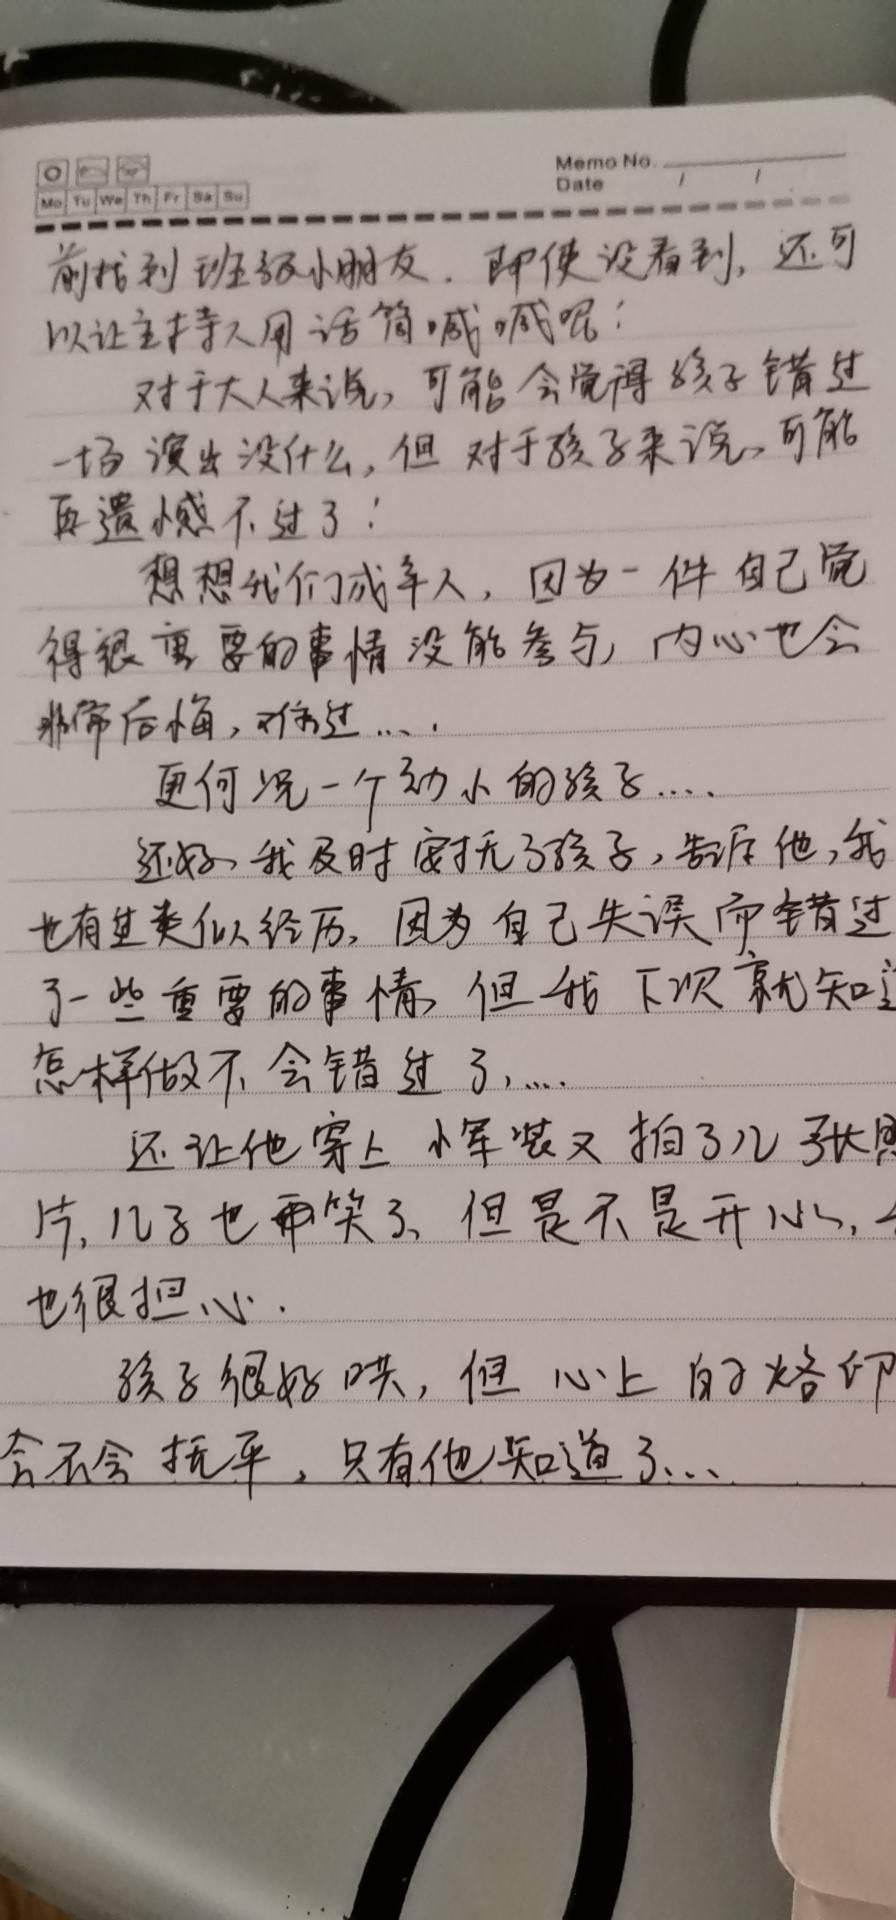 Memo No.
Date / /
Mo Tu We Th Fr Sa Su
前找到班级小朋友. 即使没看到, 还可
以让主持人用话筒喊喊呢!
对于大人来说, 可能会觉得孩子错过
一场演出没什么, 但对于孩子来说, 可能
再遗憾不过了!
想想我们成年人, 因为一件自己觉
得很重要的事情没能参与, 内心也会
非常后悔, 难过....
更何况一个幼小的孩子....
还好, 我及时安抚了孩子, 告诉他, 我
也有过类似经历, 因为自己失误而错过
了一些重要的事情, 但我下次就知道
怎样做不会错过了, ....
还让他穿上小军装又拍了几张照
片, 儿子也再笑了, 但是不是开心,
也很担心.
孩子很好哄, 但心上的烙印
会不会抚平, 只有他知道了....